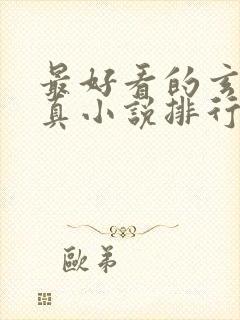 最好看的玄
真小說排行
歐弟